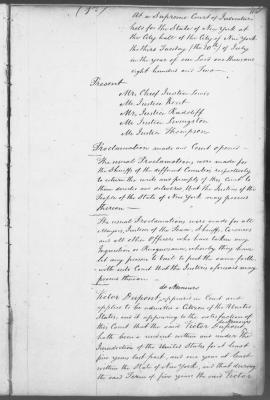 At a Supreme Court of Judicature
held for the State of New York at
the City hall of the City of New York
the third Tuesday (the 20th) of July
in the year of our Lord one thousand
eight hundred and Two —
Present
Mr. Chief Justice Lewis
Mr. Justice Kent
Mr. Justice Radcliff
Mr. Justice Livingston
Mr. Justice Thompson
Proclamation made and Court opened —
The usual Proclamations were made for
the Sheriffs of the different Counties respectively
to return the writs and precepts of this Court to
them directed and delivered that the Justices of the
People of the State of New York may proceed
thereon —
The usual Proclamations were made for all
Mayors, Justices of the Peace, Sheriffs, Coroners
and all other Officers who have taken any
Inquisition or Recognizance, whereby they have
let any person to bail to put the same forth
with unto Court that the Justices aforesaid may
proceed thereon —
de Nemours
Victor Dupont, appeared in Court and
applied to be admitted a Citizen of the United
States, and it appearing to the satisfaction of
this Court that the said Victor Dupont
de Nemours
hath been a resident within and under the
Jurisdiction of the United States for at least
five years last past, and one year at least
within the State of New York, and that during
the said Term of five years the said Victor